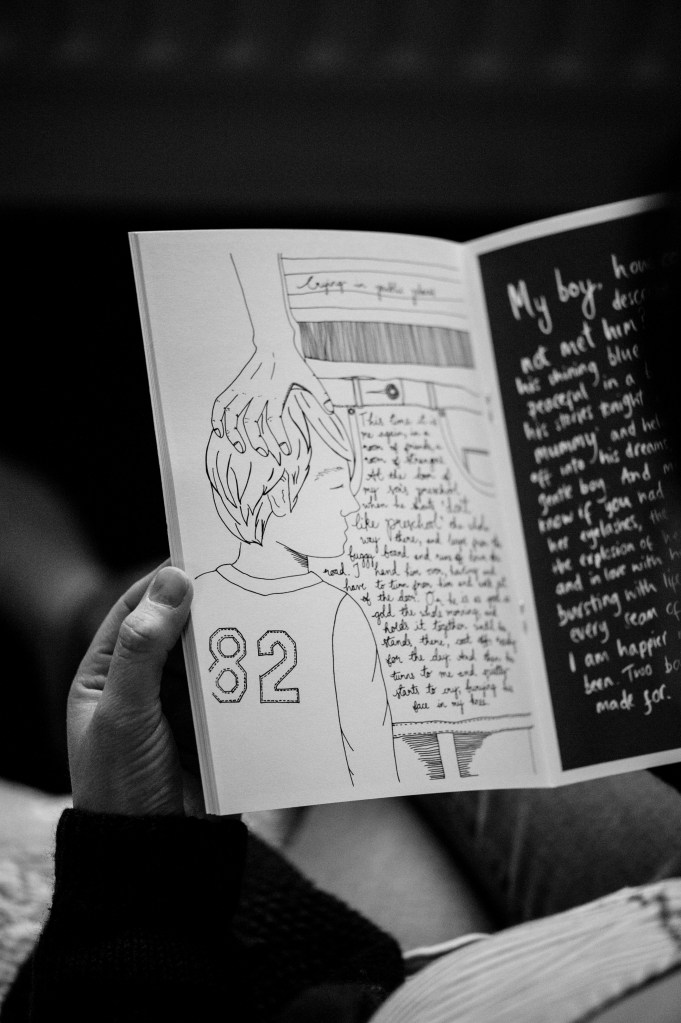 Crying in public places
This time it is
me again, in a
room of friends, a
room of strangers.
At the door of
my son's preschool
when he shouts "don't
like preschool" the whole
way there, and leaps from the
buggy board and runs down the
road. I hand him over, bawling and
have to turn from him and walk out
of the door. On he is as good as
gold the whole morning, and
holds it together until he
stands there, coat on ready
for the day. And then he
turns to me and quietly
starts to cry, burying his
face in my knee.
82
My boy, how
desc
not met him
his shining blue
peaceful in a
his stories tonight
mummy" and hel
off into his dreams
gentle boy. And m
know if you had
her eyelashes, the
the explosion of
and in love with h
bursting with life
every seam of
I am happier
been. Two bo
made for.